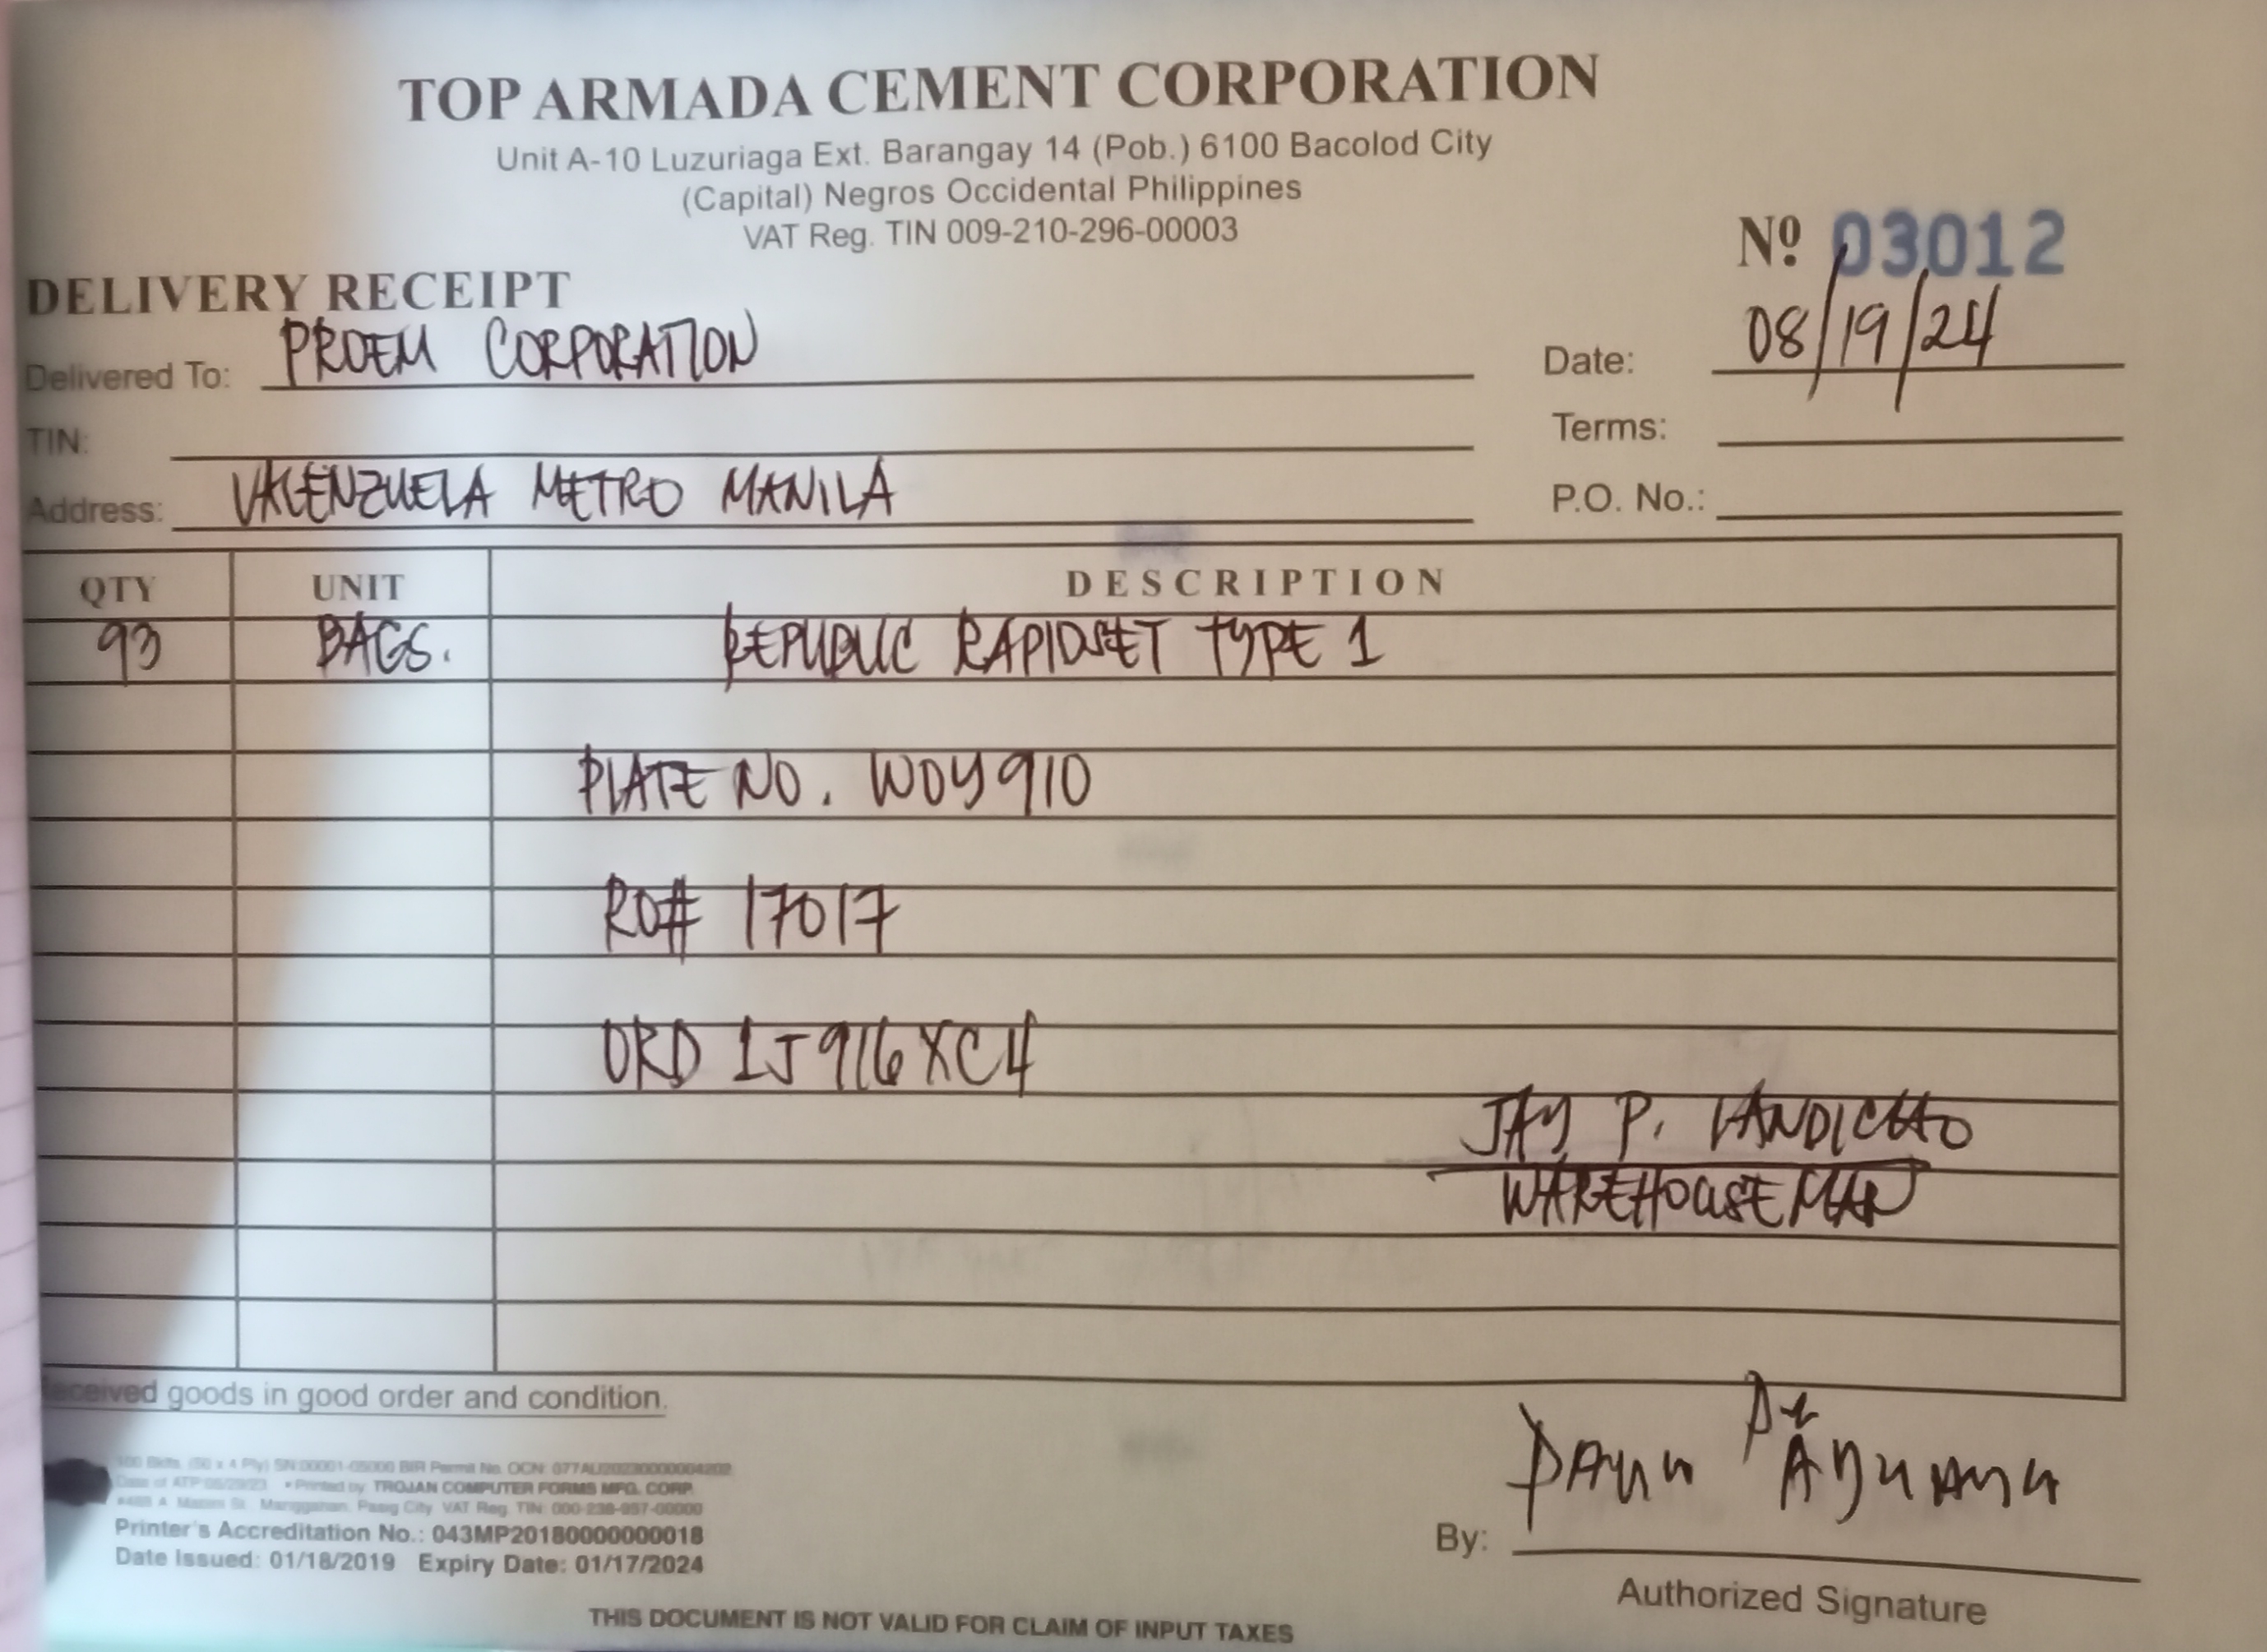 TOP ARMADA CEMENT CORPORATION
Unit A-10 Luzuriaga Ext. Barangay 14 (Pob.) 6100 Bacolod City
(Capital) Negros Occidental Philippines
VAT Reg. TIN 009-210-296-00003
Nº 03012
DELIVERY RECEIPT
Delivered To: PROEM CORPORATION
Date: 08/19/24
TIN:
Terms:
Address: VALENZUELA METRO MANILA
P.O. No.:
QTY UNIT DESCRIPTION
93 BAGS. REPUBLIC RAPIDSET TYPE 1
PLATE NO. WOY910
RO# 17017
ORD 1J916XC4
JAY P.
WAREHOUSEMAN
Received goods in good order and condition.
100 Bklts. (50 x 4 Ply) SN:00001-05000 BIR Permit No. OCN:
Date of ATP • Printed by: TROJAN COMPUTER FORMS MFG. CORP.
Manggahan, Pasig City VAT Reg. TIN:
Printer's Accreditation No.: 043MP20180000000018
Date Issued: 01/18/2019 Expiry Date: 01/17/2024
By:
Authorized Signature
THIS DOCUMENT IS NOT VALID FOR CLAIM OF INPUT TAXES